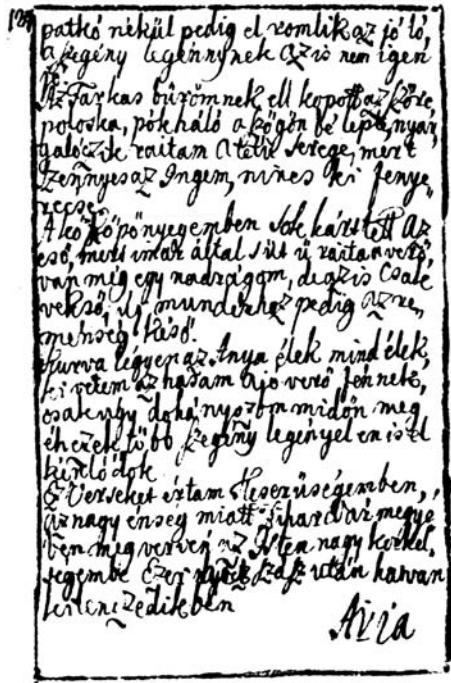 patkó nékül pedig el romlik az jó ló,
a szegény legénynek az is nem igen
Az Farkas bűrömnek ell kopott az szőre
poloska, pókháló a kögön bé lepte, nyár
galoczik raitam a tetü serege, mert
szennyes az Ingem, nincs ki fenye
recse
A kó köpönyegemben sok kárt tett az
eső, mert imár által süt
van még egy nadrágom, de az is csak
vékső, új mundérhoz pedig az re
menség késő.
kurva légyen az Anya élek mind élek,
ki vetem az hasam a jó verő fénnek,
csak úgy dohányszom midőn meg
éhezek, több szegény legényel en is el
kérlódok
Ez Verseket irtam Keserüségemben,
az nagy énség miatt Bihar Vármegyé
ben meg vervén az Isten nagy
segembe Ezer nyólc száz után hatvan
ben
Aria